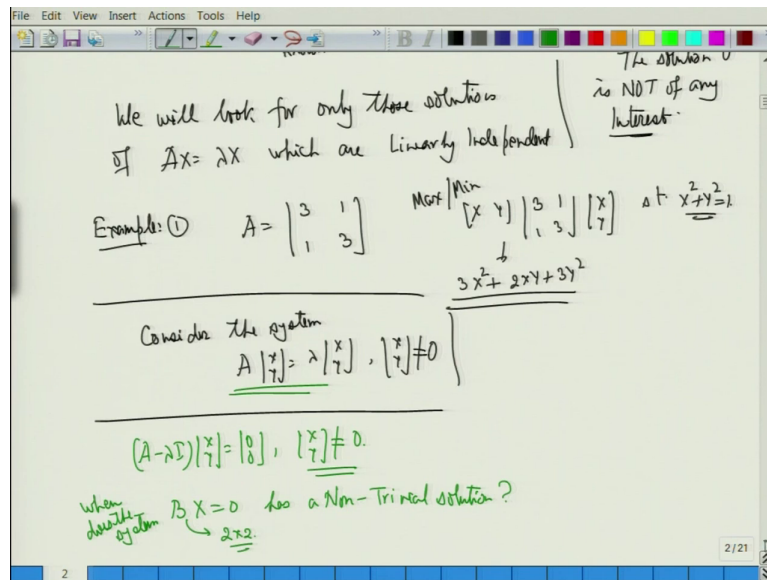 File Edit View Insert Actions Tools Help
The solution 0
is NOT of any
Interest.
We will look for only those solutions
of AX = λX which are Linearly Independent
Example: ① A = [3 1; 1 3]
Max/Min [x y] [3 1; 1 3] [x; y] st x²+y²=1.
↓
3x²+2xy+3y²
Consider the system
A [x; y] = λ [x; y], [x; y] ≠ 0
(A-λI) [x; y] = [0; 0], [x; y] ≠ 0.
when does the system BX=0 has a Non-Trivial solution?
2x2.
2/21
2